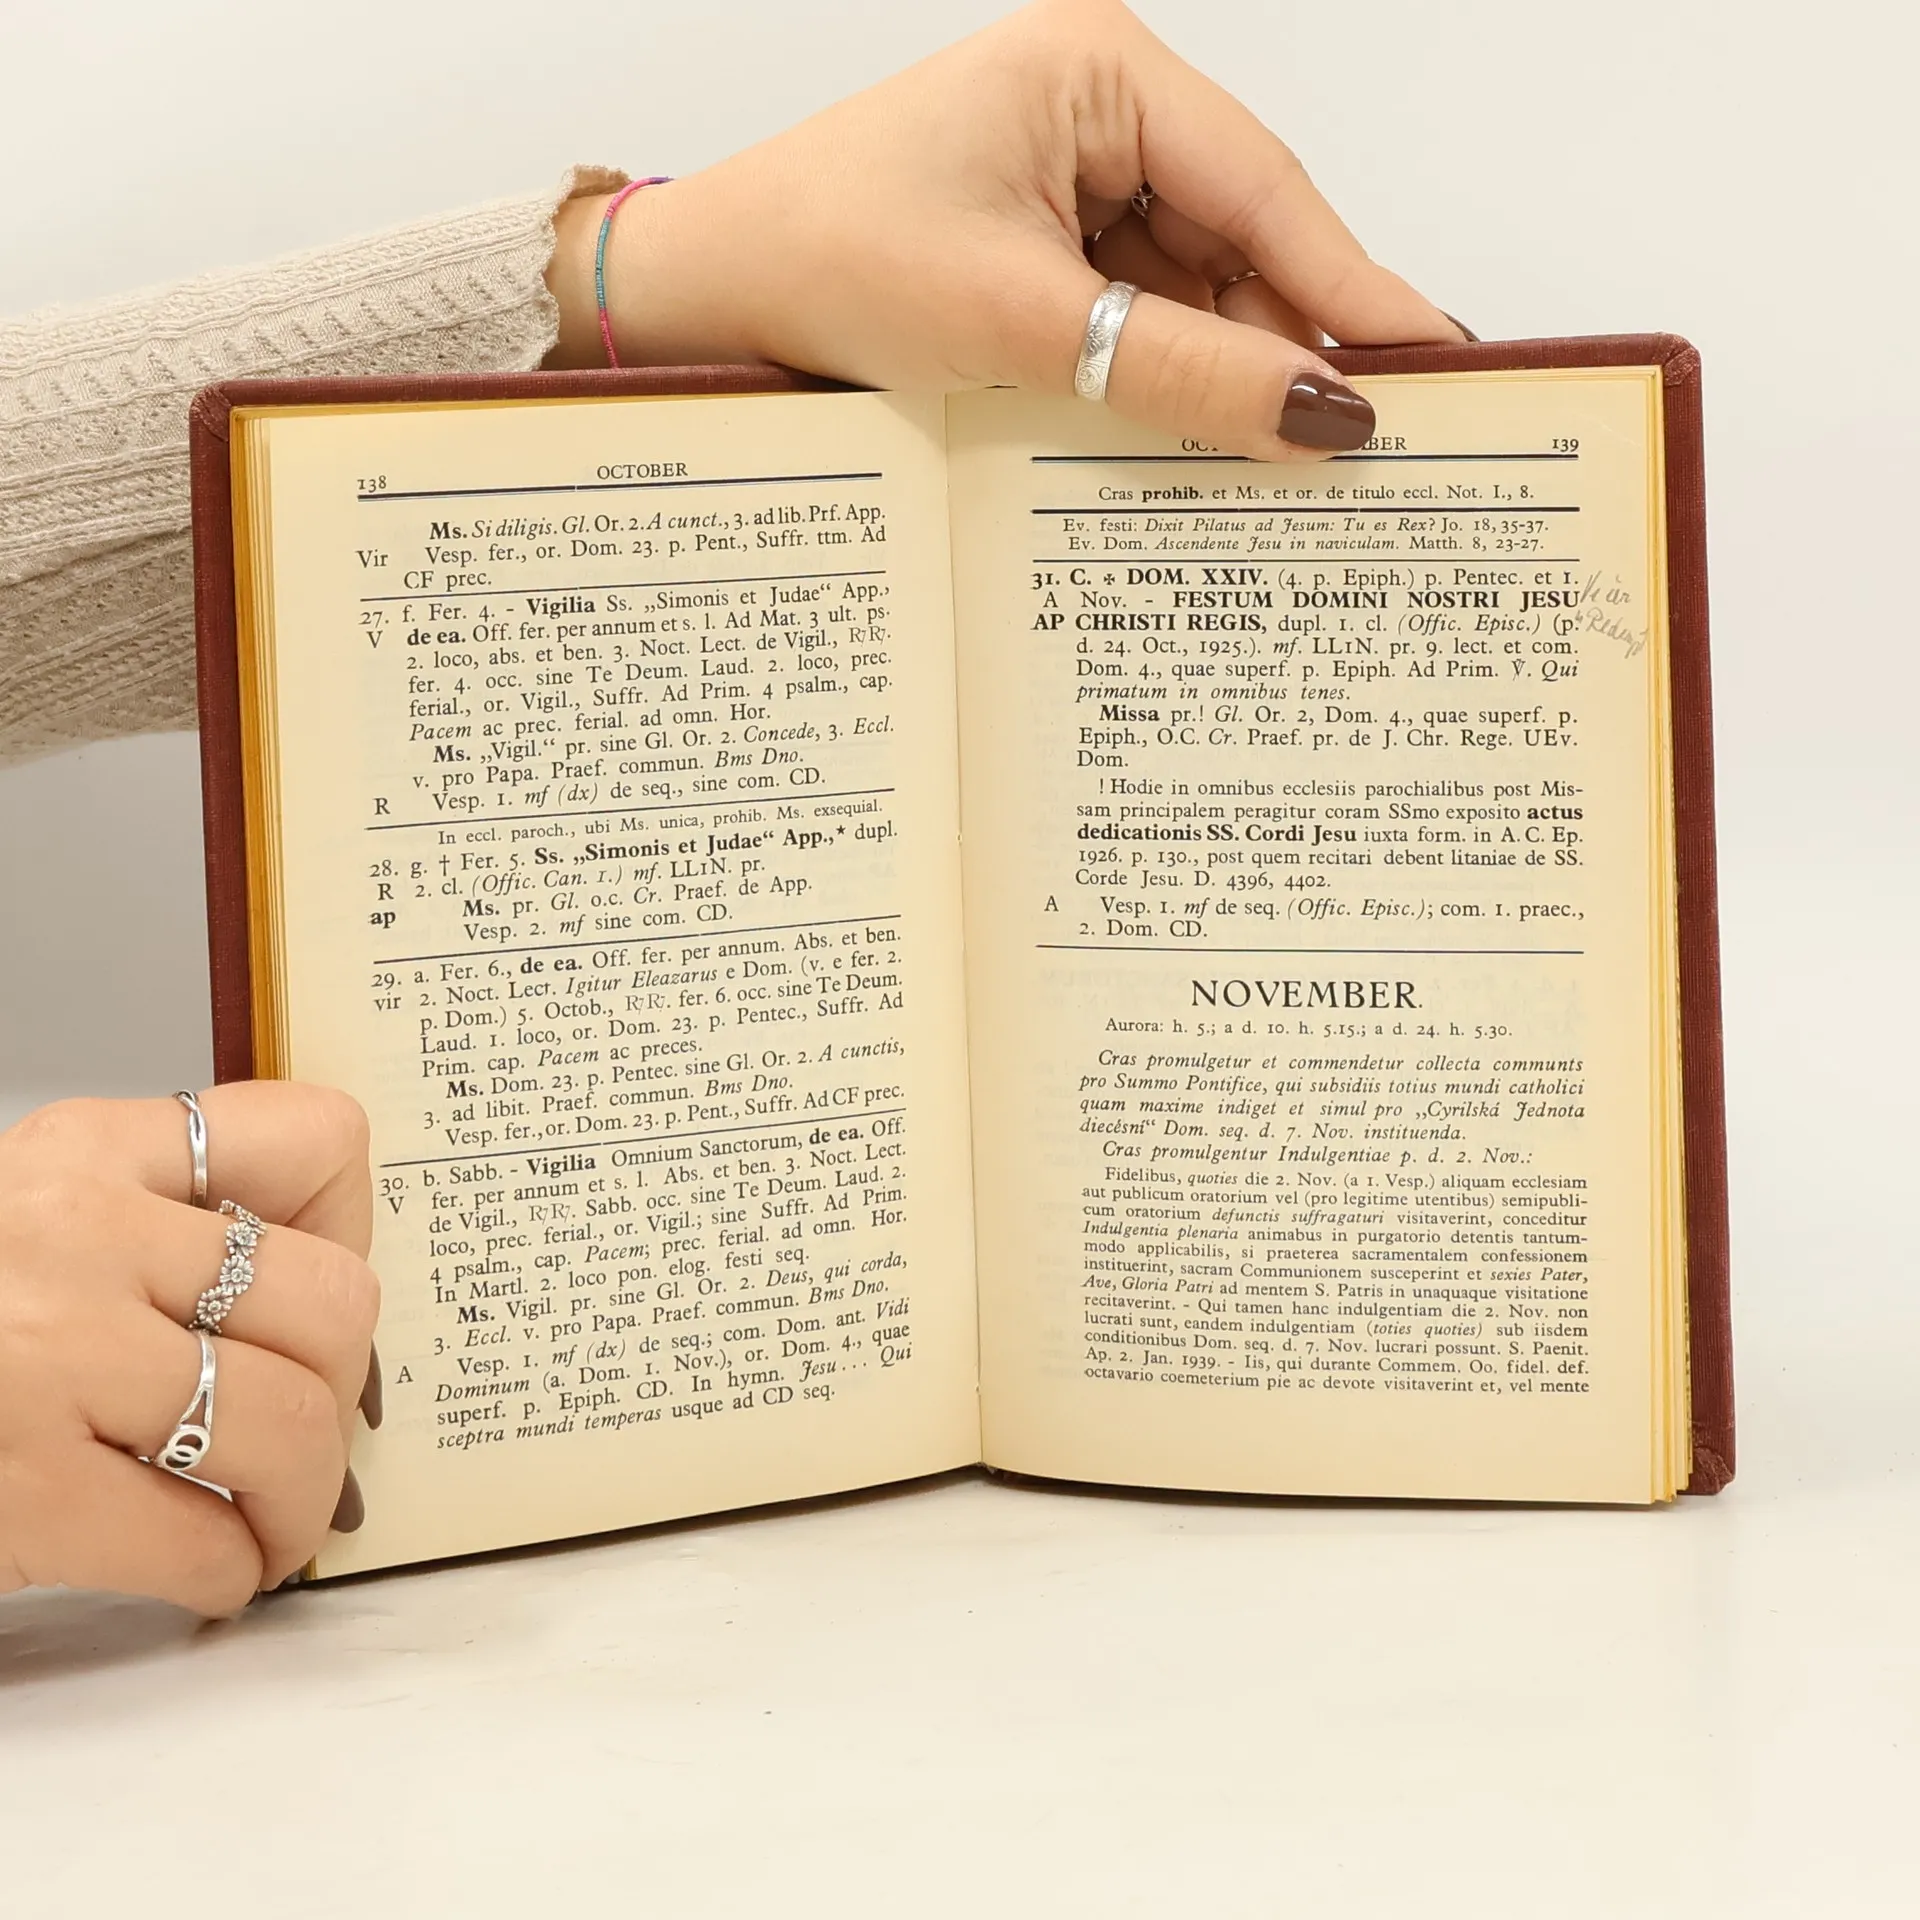 138 OCTOBER
Ms. Si diligis. Gl. Or. 2. A cunct., 3. ad lib. Prf. App.
Vir Vesp. fer., or. Dom. 23. p. Pent., Suffr. ttm. Ad
CF prec.
27. f. Fer. 4. - Vigilia Ss. „Simonis et Judae“ App.,
V de ea. Off. fer. per annum et s. l. Ad Mat. 3 ult. ps.
2. loco, abs. et ben. 3. Noct. Lect. de Vigil., R̷R̷.
fer. 4. occ. sine Te Deum. Laud. 2. loco, prec.
ferial., or. Vigil., Suffr. Ad Prim. 4 psalm., cap.
Pacem ac prec. ferial. ad omn. Hor.
Ms. „Vigil.“ pr. sine Gl. Or. 2. Concede, 3. Eccl.
v. pro Papa. Praef. commun. Bms Dno.
R Vesp. 1. mf (dx) de seq., sine com. CD.
In eccl. paroch., ubi Ms. unica, prohib. Ms. exsequial.
28. g. † Fer. 5. Ss. „Simonis et Judae“ App.,* dupl.
R 2. cl. (Offic. Can. 1.) mf. LL1N. pr.
ap Ms. pr. Gl. o.c. Cr. Praef. de App.
Vesp. 2. mf sine com. CD.
29. a. Fer. 6., de ea. Off. fer. per annum. Abs. et ben.
vir 2. Noct. Lect. Igitur Eleazarus e Dom. (v. e fer. 2.
p. Dom.) 5. Octob., R̷R̷. fer. 6. occ. sine Te Deum.
Laud. 1. loco, or. Dom. 23. p. Pentec., Suffr. Ad
Prim. cap. Pacem ac preces.
Ms. Dom. 23. p. Pentec. sine Gl. Or. 2. A cunctis,
3. ad libit. Praef. commun. Bms Dno.
Vesp. fer., or. Dom. 23. p. Pent., Suffr. Ad CF prec.
30. b. Sabb. - Vigilia Omnium Sanctorum, de ea. Off.
V fer. per annum et s. l. Abs. et ben. 3. Noct. Lect.
de Vigil., R̷R̷. Sabb. occ. sine Te Deum. Laud. 2.
loco, prec. ferial., or. Vigil.; sine Suffr. Ad Prim.
4 psalm., cap. Pacem; prec. ferial. ad omn. Hor.
In Martl. 2. loco pon. elog. festi seq.
Ms. Vigil. pr. sine Gl. Or. 2. Deus, qui corda,
3. Eccl. v. pro Papa. Praef. commun. Bms Dno.
A Vesp. 1. mf (dx) de seq.; com. Dom. ant. Vidi
Dominum (a. Dom. 1. Nov.), or. Dom. 4., quae
superf. p. Epiph. CD. In hymn. Jesu... Qui
sceptra mundi temperas usque ad CD seq.
139
Cras prohib. et Ms. et or. de titulo eccl. Not. I., 8.
Ev. festi: Dixit Pilatus ad Jesum: Tu es Rex? Jo. 18, 35-37.
Ev. Dom. Ascendente Jesu in naviculam. Matth. 8, 23-27.
31. C. ✠ DOM. XXIV. (4. p. Epiph.) p. Pentec. et 1.
A Nov. - FESTUM DOMINI NOSTRI JESU
AP CHRISTI REGIS, dupl. 1. cl. (Offic. Episc.) (p.
d. 24. Oct., 1925.). mf. LL1N. pr. 9. lect. et com.
Dom. 4., quae superf. p. Epiph. Ad Prim. ℣. Qui
primatum in omnibus tenes.
Missa pr.! Gl. Or. 2, Dom. 4., quae superf. p.
Epiph., O.C. Cr. Praef. pr. de J. Chr. Rege. UEv.
Dom.
! Hodie in omnibus ecclesiis parochialibus post Mis-
sam principalem peragitur coram SSmo exposito actus
dedicationis SS. Cordi Jesu iuxta form. in A. C. Ep.
1926. p. 130., post quem recitari debent litaniae de SS.
Corde Jesu. D. 4396, 4402.
A Vesp. 1. mf de seq. (Offic. Episc.); com. 1. praec.,
2. Dom. CD.
NOVEMBER.
Aurora: h. 5.; a d. 10. h. 5.15.; a d. 24. h. 5.30.
Cras promulgetur et commendetur collecta communts
pro Summo Pontifice, qui subsidiis totius mundi catholici
quam maxime indiget et simul pro „Cyrilská Jednota
diecésní“ Dom. seq. d. 7. Nov. instituenda.
Cras promulgentur Indulgentiae p. d. 2. Nov.:
Fidelibus, quoties die 2. Nov. (a 1. Vesp.) aliquam ecclesiam
aut publicum oratorium vel (pro legitime utentibus) semipubli-
cum oratorium defunctis suffragaturi visitaverint, conceditur
Indulgentia plenaria animabus in purgatorio detentis tantum-
modo applicabilis, si praeterea sacramentalem confessionem
instituerint, sacram Communionem susceperint et sexies Pater,
Ave, Gloria Patri ad mentem S. Patris in unaquaque visitatione
recitaverint. - Qui tamen hanc indulgentiam die 2. Nov. non
lucrati sunt, eandem indulgentiam (toties quoties) sub iisdem
conditionibus Dom. seq. d. 7. Nov. lucrari possunt. S. Paenit.
Ap. 2. Jan. 1939. - Iis, qui durante Commem. Oo. fidel. def.
octavario coemeterium pie ac devote visitaverint et, vel mente